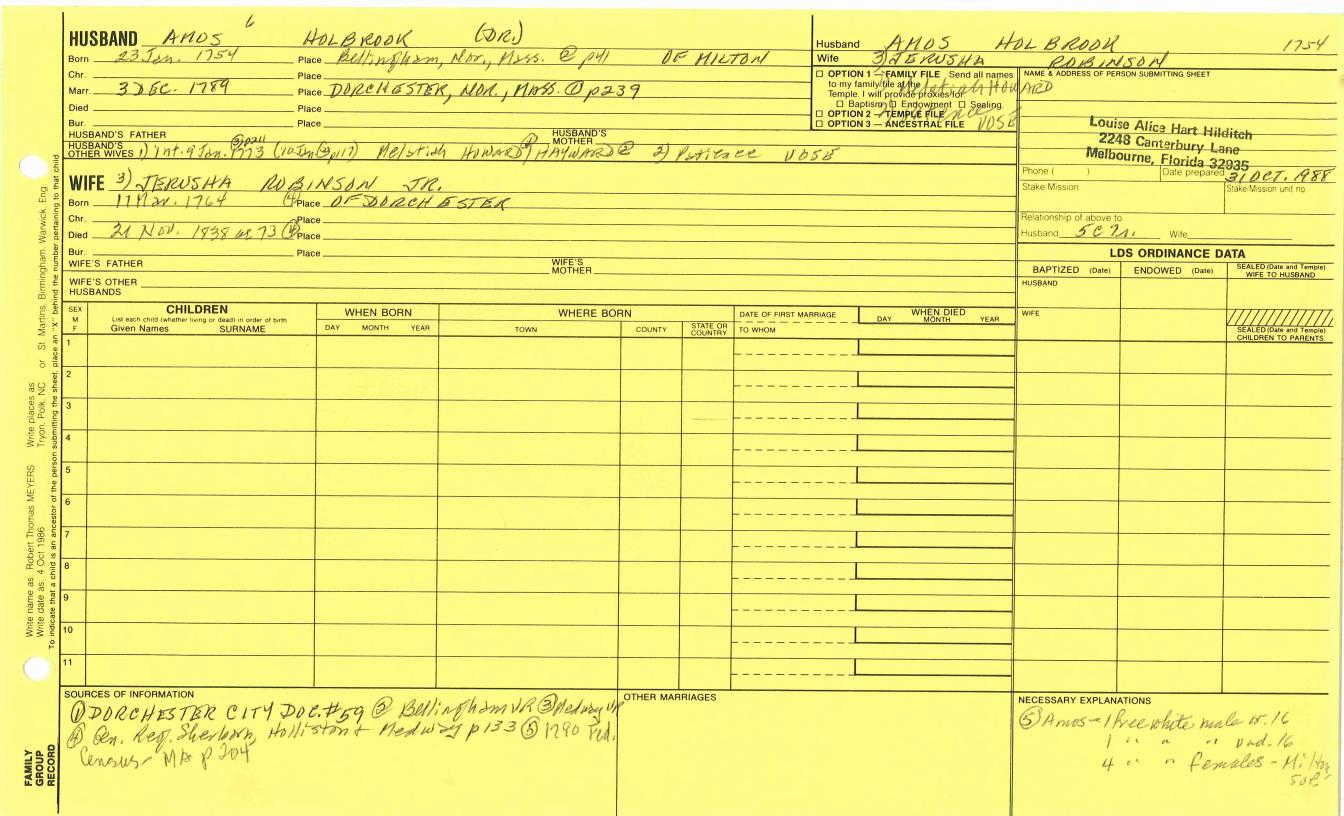 HUSBAND AMOS 6 HOLBROOK (DR.)
Born 23 Jan. 1754 Place Bellingham, Nor., Mass. ② p41 OF MILTON
Chr. Place
Marr. 3 DEC. 1789 Place DORCHESTER, NOR., MASS. ① p239
Died Place
Bur. Place
HUSBAND'S FATHER HUSBAND'S MOTHER
HUSBAND'S OTHER WIVES 1) Int. 9 Jan. 1773 (10 Jan ② p117) HOWARD HAYWARD ② 2) Patience VOSE
WIFE 3) JERUSHA ROBINSON JR.
Born 17 Mar. 1764 ④ Place OF DORCHESTER
Chr. Place
Died 21 Nov. 1838 ae 73 ④ Place
Bur. Place
WIFE'S FATHER WIFE'S MOTHER
WIFE'S OTHER HUSBANDS
Husband AMOS HOLBROOK 1754
Wife 3) JERUSHA ROBINSON
☐ OPTION 1 — FAMILY FILE Send all names
to my family file at the
Temple. I will provide proxies for
☐ Baptism ☐ Endowment ☐ Sealing
☐ OPTION 2 — TEMPLE FILE
☐ OPTION 3 — ANCESTRAL FILE
HOWARD
VOSE
NAME & ADDRESS OF PERSON SUBMITTING SHEET
Louise Alice Hart Hilditch
2248 Canterbury Lane
Melbourne, Florida 32935
Phone ( ) Date prepared 31 OCT. 1988
Stake Mission Stake Mission unit no.
Relationship of above to
Husband 5C 7r. Wife
LDS ORDINANCE DATA
BAPTIZED (Date) ENDOWED (Date) SEALED (Date and Temple) WIFE TO HUSBAND
HUSBAND
WIFE
SEALED (Date and Temple) CHILDREN TO PARENTS
SEX M F
CHILDREN
List each child (whether living or dead) in order of birth
Given Names SURNAME
WHEN BORN
DAY MONTH YEAR
WHERE BORN
TOWN COUNTY STATE OR COUNTRY
DATE OF FIRST MARRIAGE
TO WHOM
WHEN DIED
DAY MONTH YEAR
1
2
3
4
5
6
7
8
9
10
11
SOURCES OF INFORMATION
① DORCHESTER CITY DOC. #59 ② Bellingham VR ③ Medway VR
④ Gen. Reg. Sherborn, Holliston & Medway p 133 ⑤ 1790 Fed.
Census - MA p 204
OTHER MARRIAGES
NECESSARY EXPLANATIONS
⑤ Amos - 1 free white male ov. 16
1 " " " und. 16
4 " " females - Milton
Write name as Robert Thomas MEYERS Write places as Tryon, Polk, NC or St Martins, Birmingham, Warwick, Eng.
Write date as 4 Oct 1986
To indicate that a child is an ancestor of the person submitting the sheet, place an "X" behind the number pertaining to that child
FAMILY
GROUP
RECORD